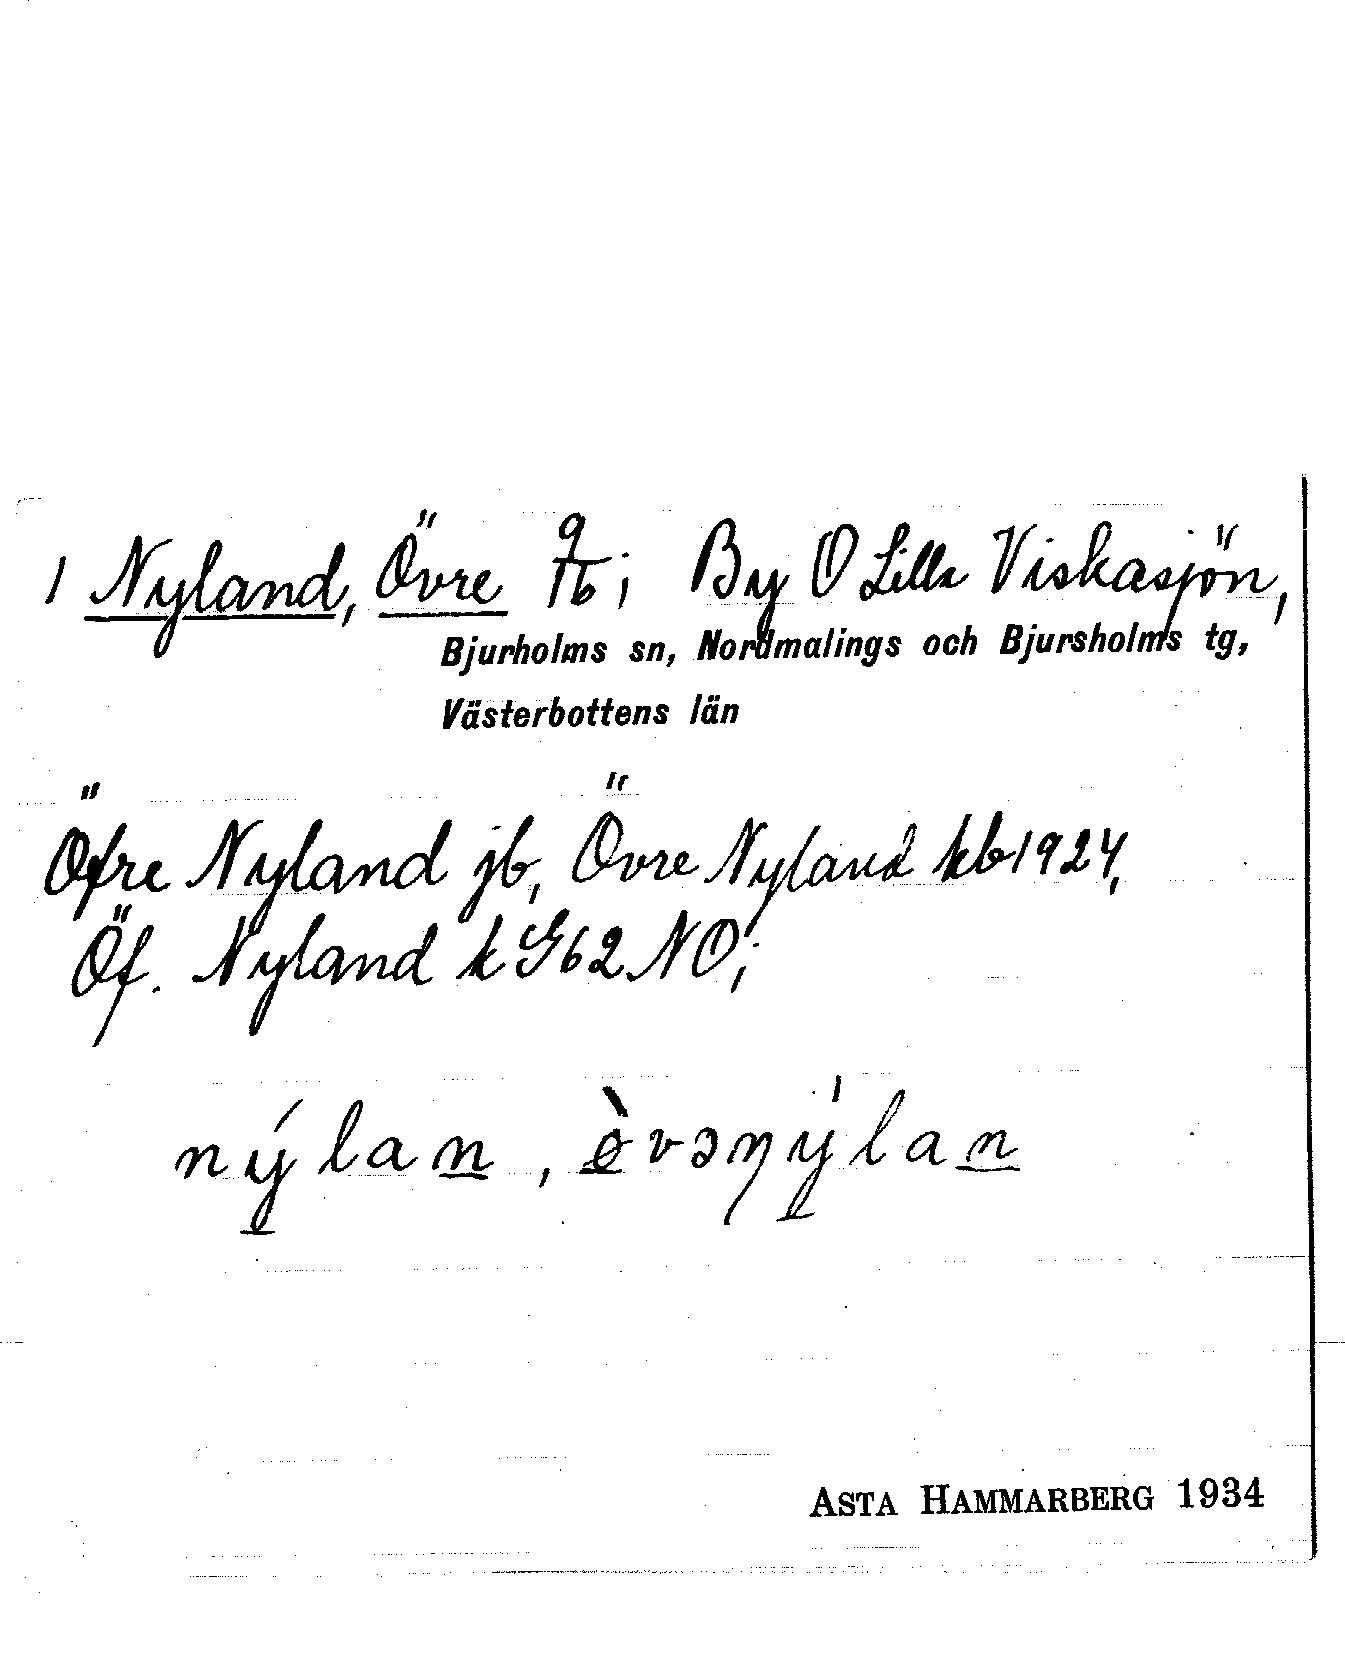 1 Nyland, Övre 9/16; By O Lilla Viskasjön,
Bjurholms sn, Nordmalings och Bjursholms tg,
Västerbottens län
Öfre Nyland jb, Övre Nyland kb 1924,
Öf. Nyland k G62 NO;
nýlan, ø̀vəŋýlan
ASTA HAMMARBERG 1934